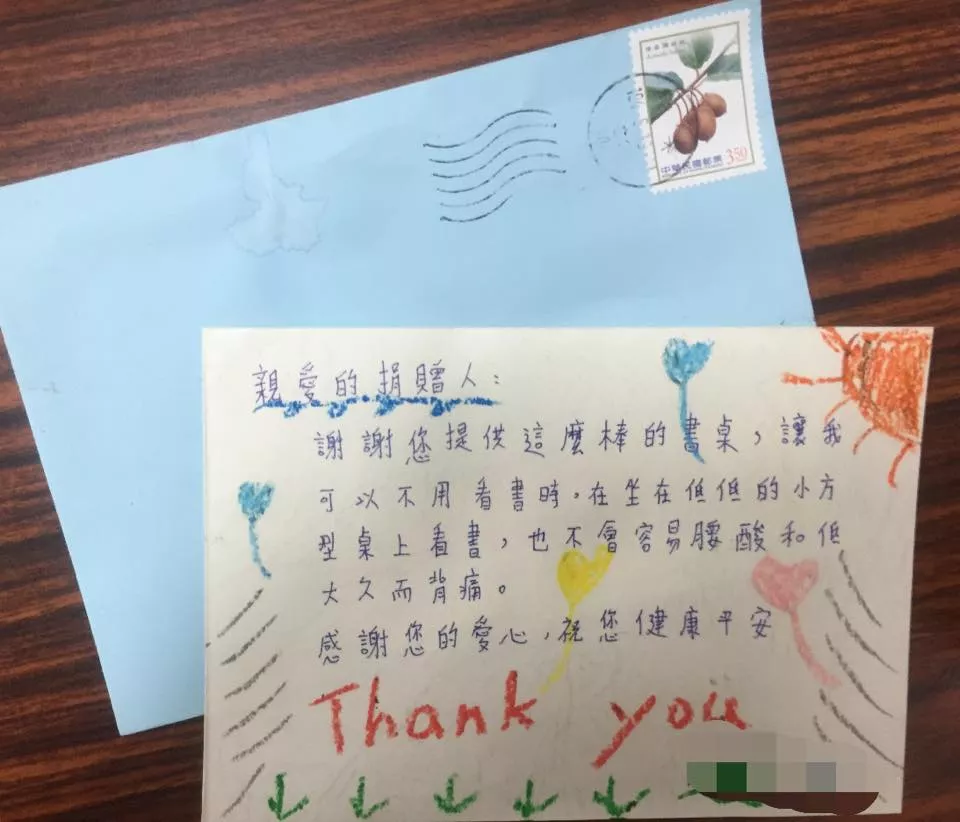 中華民國郵票
350
親愛的捐贈人：
謝謝您提供這麼棒的書桌，讓我
可以不用看書時，在坐在低低的小方
型桌上看書，也不會容易腰酸和低
太久而背痛。
感謝您的愛心，祝您健康平安
Thank you